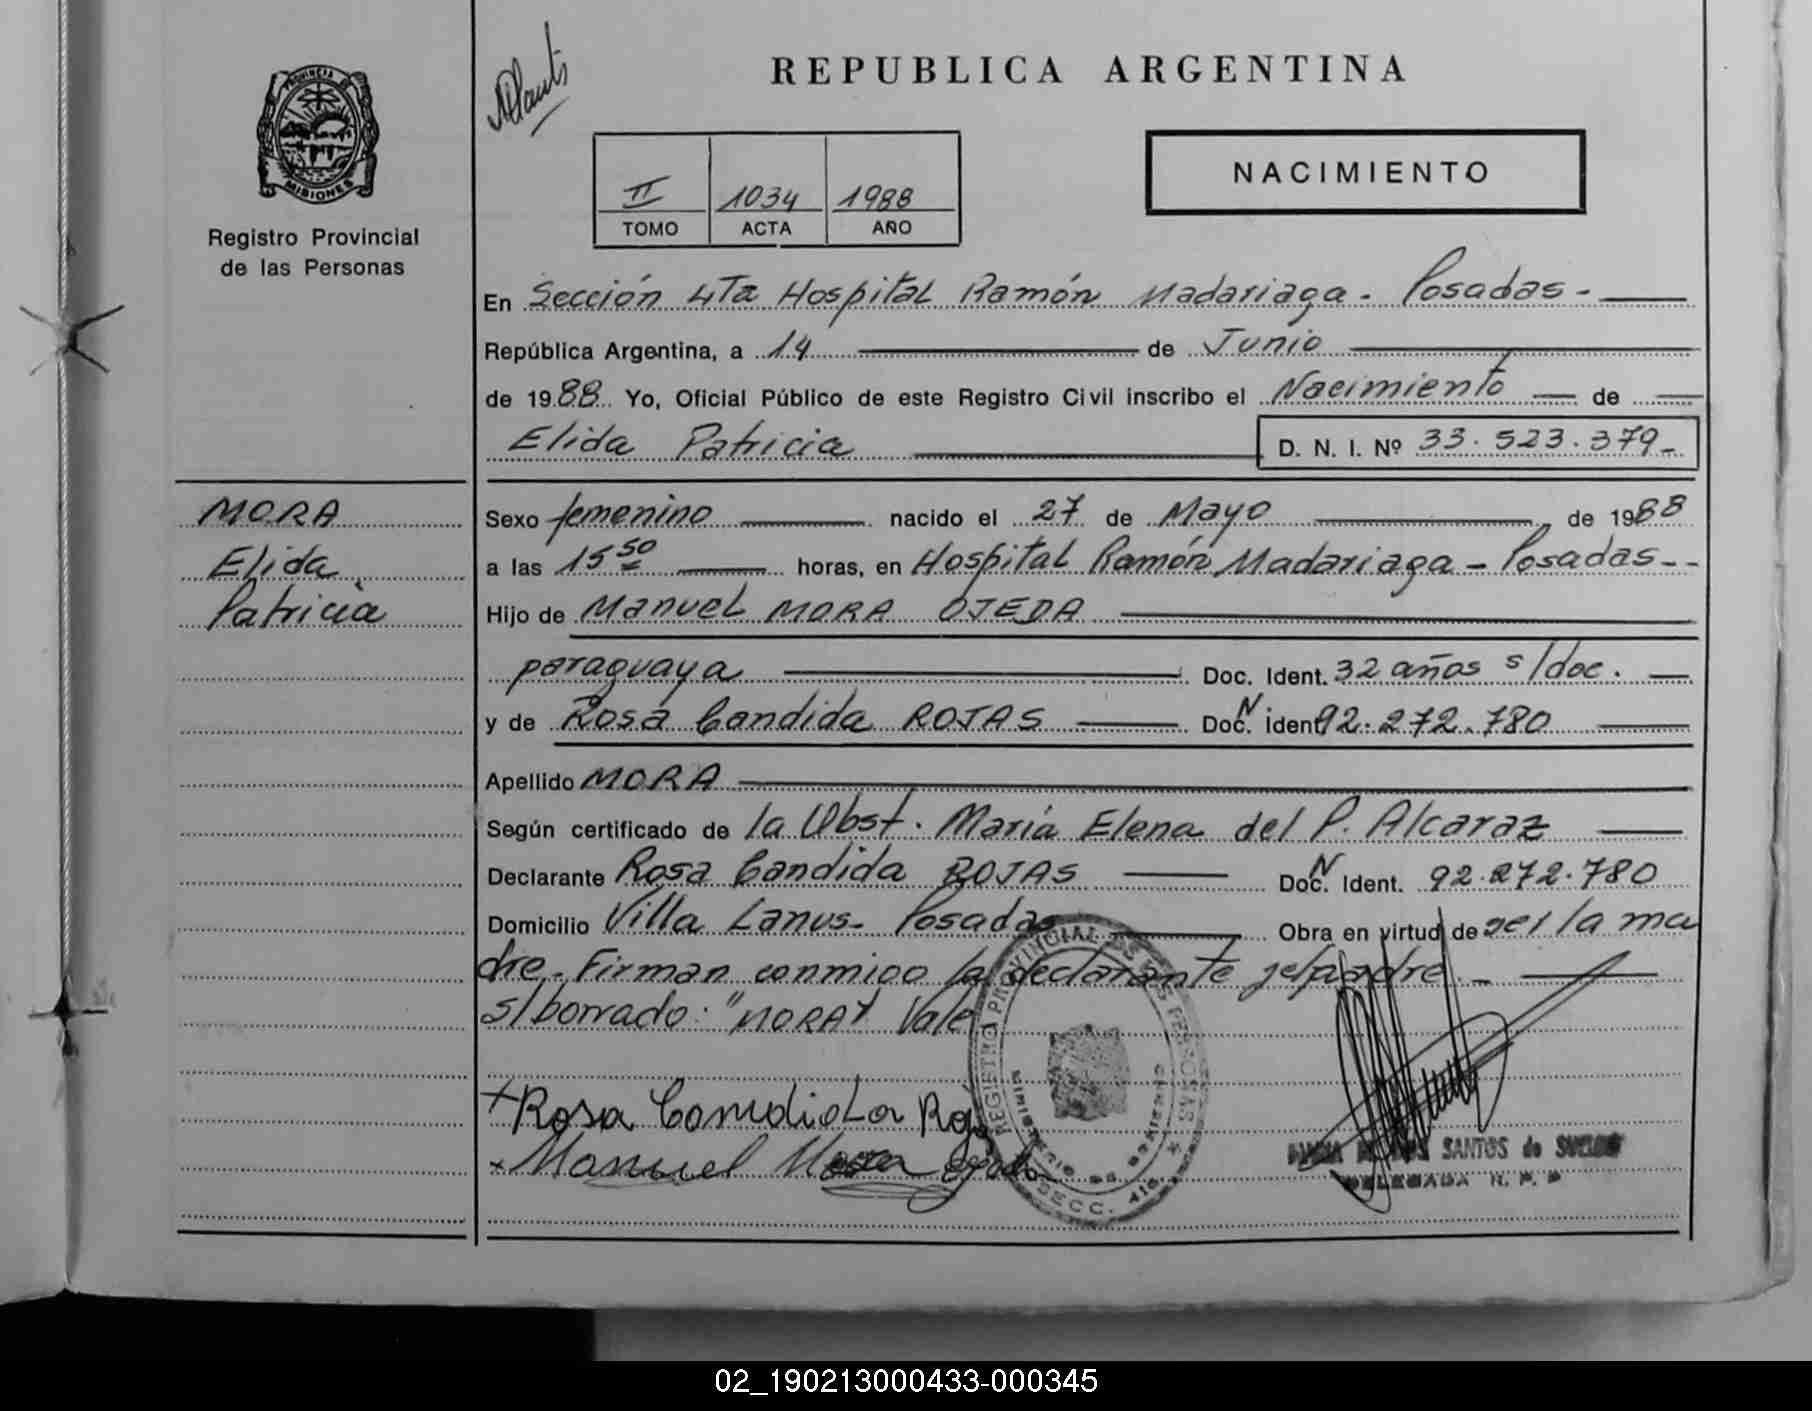 REPUBLICA ARGENTINA
PROVINCIA DE
MISIONES
Registro Provincial
de las Personas
II 1034 1988
TOMO ACTA AÑO
NACIMIENTO
En Sección 4Ta Hospital Ramón Madariaga - Posadas -
República Argentina, a 14 de Junio
de 1988 Yo, Oficial Público de este Registro Civil inscribo el Nacimiento de
Elida Patricia D. N. I. Nº 33.523.379-
MORA
Elida
Patricia
Sexo femenino nacido el 27 de Mayo de 1988
a las 15 50 horas, en Hospital Ramón Madariaga - Posadas - -
Hijo de Manuel MORA OJEDA
paraguaya Doc. Ident. 32 años s/doc.
y de Rosa Candida ROJAS Doc. N ident 92.272.780
Apellido MORA
Según certificado de la Obst. María Elena del P. Alcaraz
Declarante Rosa Candida ROJAS Doc. N Ident. 92.272.780
Domicilio Villa Lanus - Posadas Obra en virtud de ser la ma
dre - Firman conmigo la declarante padre -
s/borrado: "MORA" Vale
REGISTRO PROVINCIAL DE LAS PERSONAS
MINISTERIO DE GOBIERNO
SECC. 4ta
+ Rosa Candida Roj
x Manuel Mora Ojeda
SANTOS de
DELEGADA R. P. P
02_190213000433-000345